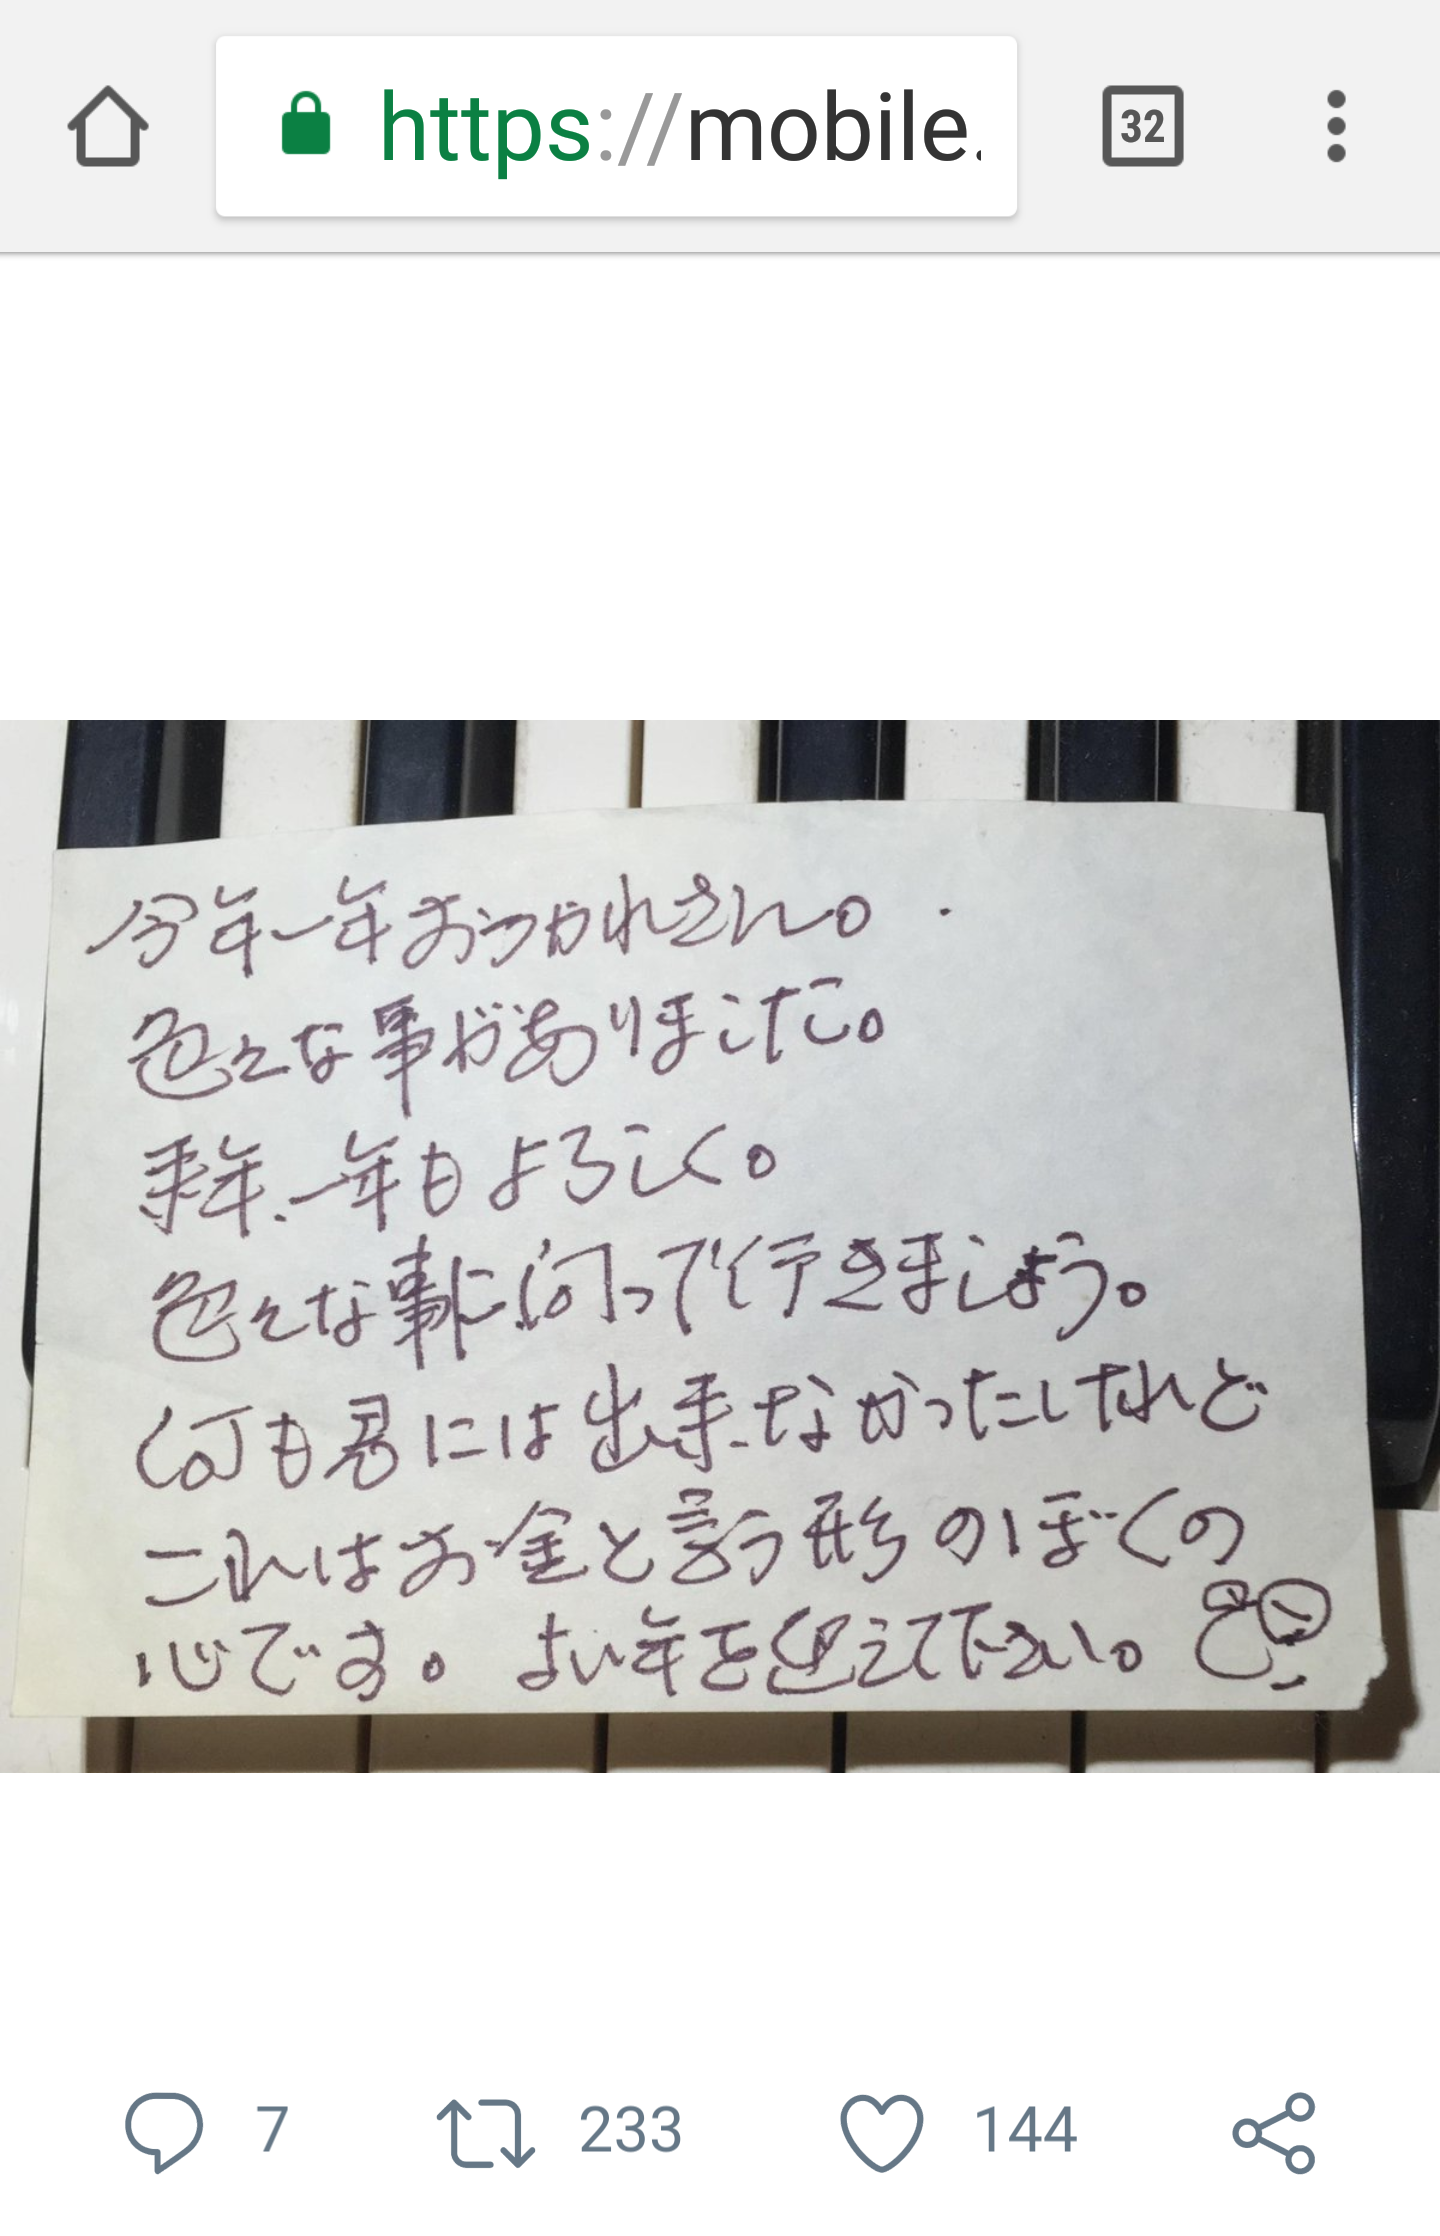 https://mobile.
32
今年一年おつかれさん。
色々な事がありました。
来年、一年もよろしく。
色々な事に向って行きましょう。
何も君には出来なかったけれど
これはお金と言う形のぼくの
心です。よい年を迎えて下さい。
7
233
144